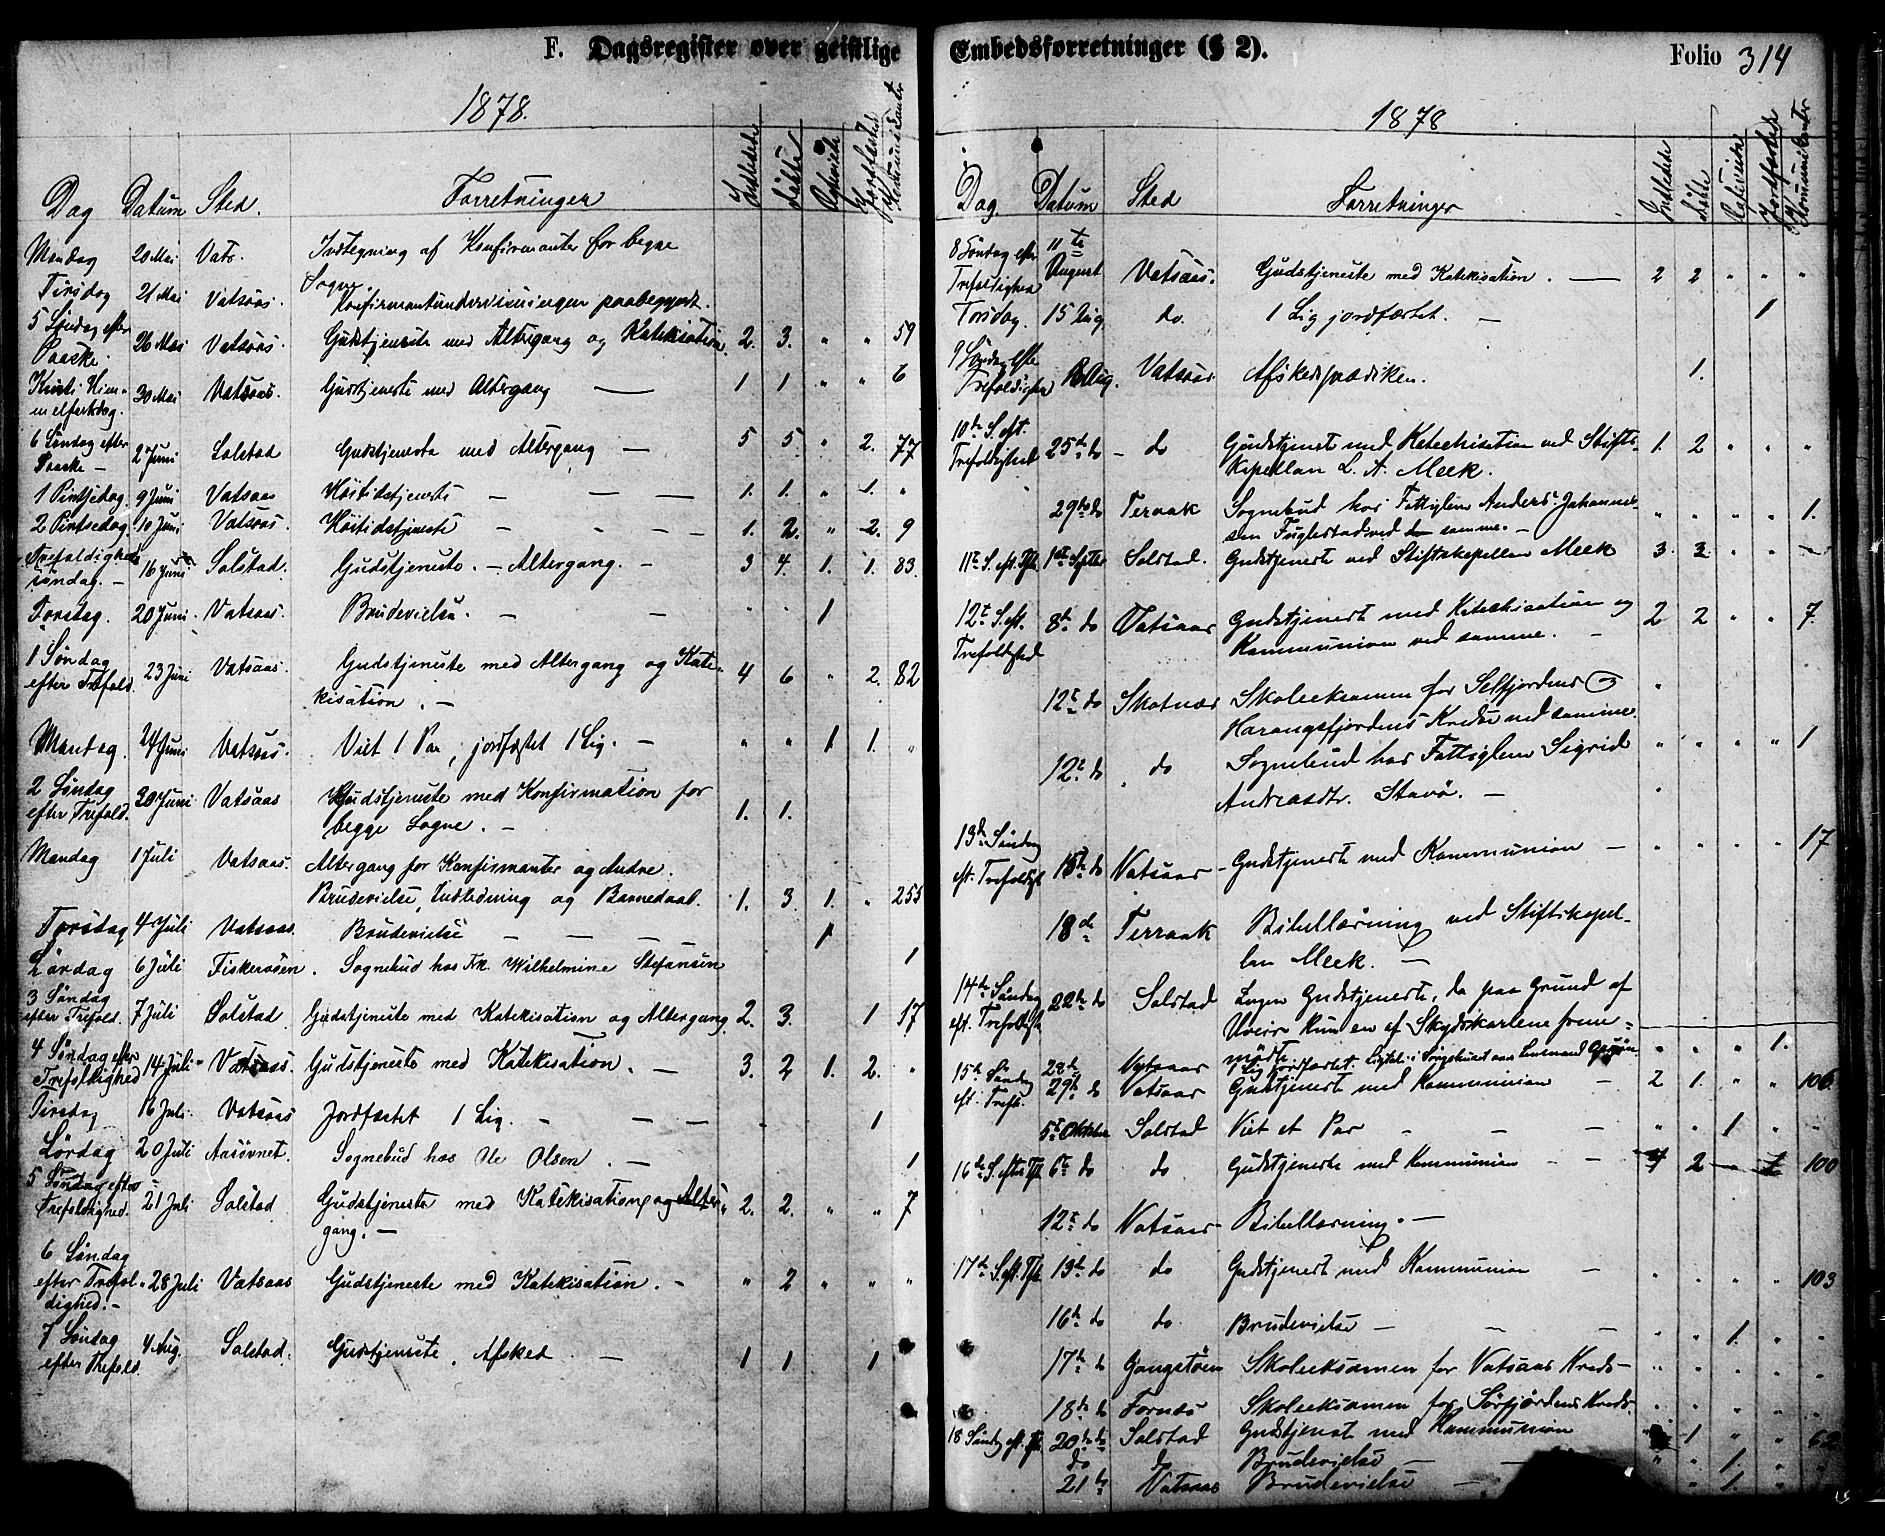 F. Dagsregister over geistlige
1878.
Dag Datum Sted. Forretninger Indledede Døbte Copulerede Jordfæstede Kommunikanter
Mandag 20 Mai Vats. Indtegning af Konfirmanter for begge
Sogne.
Tirsdag 21 Mai Vatsaas. Konfirmantundervisningen paabegyndt.
5 Søndag efter
Paaske. 26 Mai Vatsaas. Gudstjeneste med Altergang og Katekisation. 2. 3. " " 59
Kristi Him-
melfartsdag. 30 Mai Vatsaas. Gudstjeneste med Altergang — 1 1 " " 6
6 Søndag efter
Paaske – 2 Juni Solstad Gudstjeneste med Altergang — 5 5 " 2. 77
1 Pintsedag. 9 Juni Vatsaas Høitidstjeneste — — — 1. 1. " 1. "
2 Pintsedag. 10 Juni Vatsaas. Høitidstjeneste – – – 1. 2. " 2. 9
Trefoldigheds
søndag. – 16 Juni Solstad. Gudstjeneste. – Altergang. – 3 4. 1. 1. 83.
Torsdag. 20 Juni Vatsaas. Brudevielse. – – " " 1
1 Søndag
efter Trefold. 23 Juni Vatsaas. Gudstjeneste med Altergang og Kate-
kisation. – 4 6 " 2. 82
Mandag. 24 Juni Vatsaas. Viet 1 Par, jordfæstet 1 Lig. – " " 1 1. "
2 Søndag
efter Trefold. 30 Juni Vatsaas Gudstjeneste med Konfirmation for
begge Sogne. – 1. 1.
Mandag 1 Juli Vatsaas. Altergang for Konfirmanter og Andre.
Brudevielse, Indledning og Barnedaab. 1. 3. 1. " 255
Torsdag 4 Juli Vatsaas. Brudevielse – – – 1
Lørdag 6 Juli Fiskerosen. Sognebud hos Fr. Wilhelmine Stefansen 1
3 Søndag
efter Trefold. 7 Juli Solstad. Gudstjeneste med Katekisation og Altergang. 2. 3. 1 17
4 Søndag efter
Trefoldighed 14 Juli Vatsaas. Gudstjeneste med Katekisation. – 3. 2 1. 2. "
Tirsdag 16 Juli. Vatsaas Jordfæstet 1 Lig. – – – 1
Lørdag 20 Juli Aasövnet. Sognebud hos Ole Olsen. – 1
5 Søndag efter
Trefoldighed. 21 Juli Solstad Gudstjeneste med Katekisation og Alter-
gang. – 2. 2. " " 7
6 Søndag
efter Trefol-
dighed. – 28 Juli Vatsaas Gudstjeneste med Katekisation. – " 2 " " "
7 Søndag
efter Trefold. 4 Aug. Solstad. Gudstjeneste. Afsked. – 1 1 1
Embedsforretninger (§ 2). Folio 314
1878
Dag. Datum Sted Forretninger Indledede Døbte Copulerede Jordfæstede Kommunikanter
8 Søndag efter
Trefoldighed 11te August Vatsaas. Gudstjeneste med Katekisation. — 2 2 " " "
Torsdag. 15 Aug do. 1 Lig jordfæstet. – 1
9 Søndag efter
Trefoldighed Aug. Vatsaas Afskedspræediken. 1.
10de S. eft.
Trefoldighed 25de do – do Gudstjenest med Katechisation ved Stifts-
kapellan L. A. Meek. 1. 2 " " "
29de do Teraak Sognebud hos Fattiglem Anders Johanne-
sen Fuglestad ved samme. – " " " " 1.
11te S. eft. Tfh. 1ste Septbr Solstad. Gudstjeneste ved Stiftskapellan Meek 3. 3. " " –
12te S. eft.
Trefoldighed 8de do Vatsaas Gudstjenest med Katechisation og
Kommunion ved samme. – 2 2 " " 7.
12te do Skotnæs Skoleeksamen for Selfjordens og
Harangsfjordens Kredse ved samme. "
12te do do Sognebud hos Fattiglem Sigrid
Andreasdtr. Stavö. – " " " " 1
13de Søndag
eft. Trefoldigh. 15de do Vatsaas – Gudstjeneste med Kommunion – " " " " 17
18de Terraak Bibellæsning ved Stiftskapel-
lan Meek. –
14de Søndag
eft. Trefoldigh 22de do Solstad Ingen Gudstjeneste, da paa Grund af
Uveir kun en af Skydskarlene frem-
mødte.
28de Vatsaas 1 Lig jordfæstet. " " " 1.
15de Sønd.
eft. Trefh. 29de do Vatsaas Gudstjenest med Kommunion – 2 1. " " 106.
5te Oktober Solstad Viet et Par – – " " 1 " "
16de S. efter Tfh 6te do do Gudstjeneste med Kommunion – – 4 2 – 1 100
12te do Vatsaas – Bibellæsning. –
17de S. eft. Tfh. 13de do do Gudstjenest med Kommunion – " " " " 103
16de do do. Brudevielse – – – " " 1. " "
17de do Gangstøen Skoleeksamen for Vatsaas Kreds – " " " " "
18de do Fornæs Skoleeksamen for Sørfjordens Kreds. " " " " "
18 Søndag eft. Tfh. 20de do Solstad Gudstjenest med Kommunion 1 " " 62
do do Brudevielse – – " " 1. " "
21de Vatsaas Brudevielse – " 1. " "